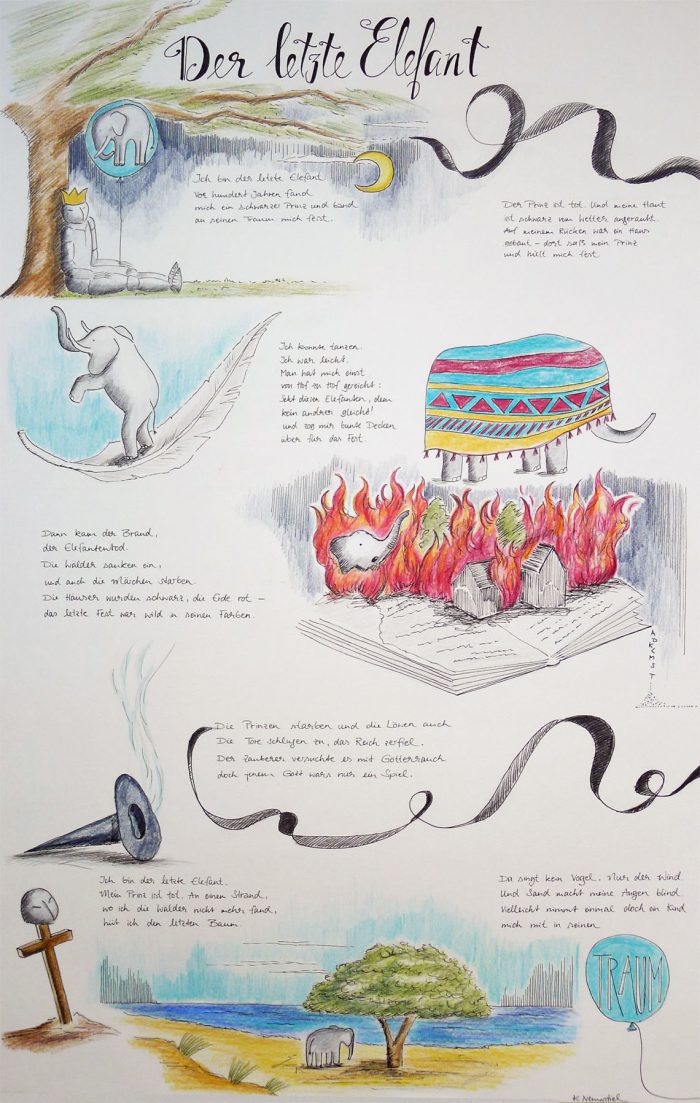 Der letzte Elefant
Ich bin der letzte Elefant
Vor hundert Jahren fand
mich ein schwarzer Prinz und band
an seinen Traum mich fest.
Der Prinz ist tot. Und meine Haut
ist schwarz vom Wetter angerauht.
Auf meinem Rücken war ein Haus
gebaut – dort saß mein Prinz
und hielt mich fest
Ich konnte tanzen.
Ich war leicht.
Man hat mich einst
von Hof zu Hof gereicht:
Seht diesen Elefanten, dem
kein andrer gleicht!
und zog mir bunte Decken
über für das Fest.
Dann kam der Brand,
der Elefantentod.
Die Wälder sanken ein,
und auch die Märchen starben.
Die Häuser wurden schwarz, die Erde rot –
das letzte Fest war wild in seinen Farben.
Die Prinzen starben und die Löwen auch
Die Tore schlugen zu, das Reich zerfiel.
Der Zauberer versuchte es mit Götterrauch
doch jenem Gott wars nur ein Spiel.
Ich bin der letzte Elefant.
Mein Prinz ist tot. An einem Strand,
wo ich die Wälder nicht mehr fand,
hüt ich den letzten Baum.
Da singt kein Vogel. Nur der Wind.
Und Sand macht meine Augen blind.
Vielleicht nimmt einmal doch ein Kind
mich mit in seinen
TRAUM